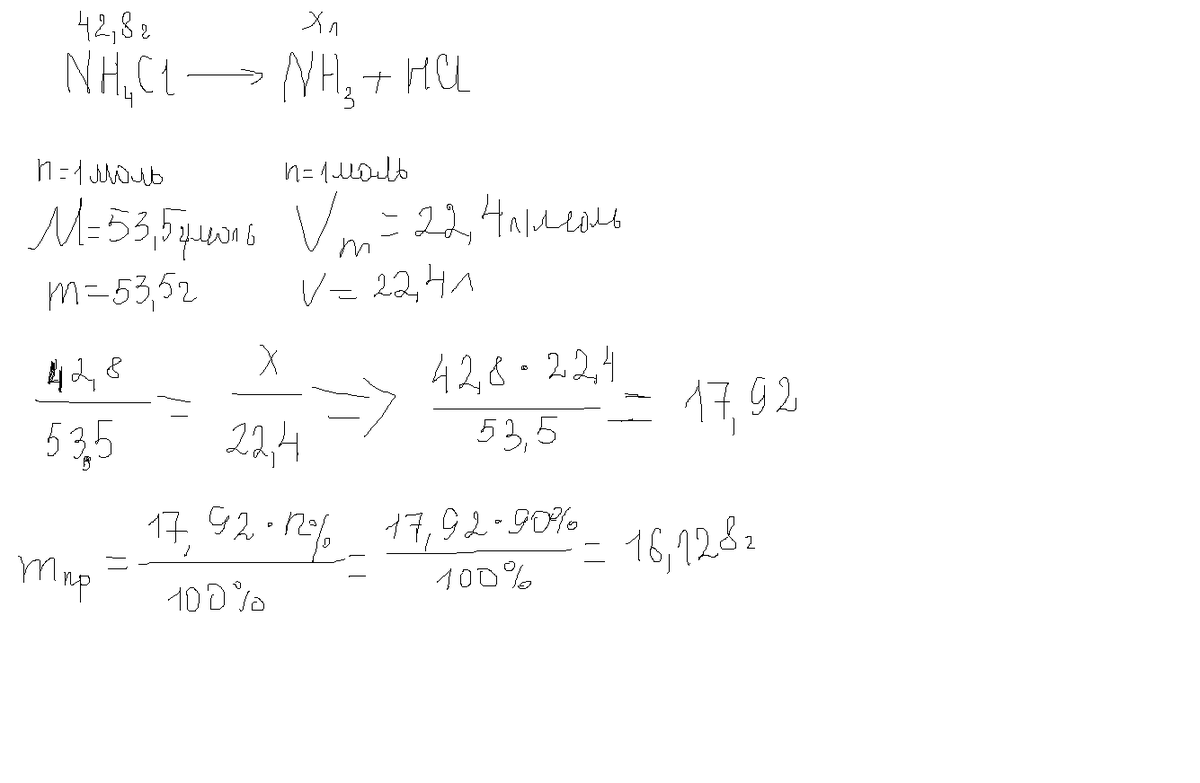 42,8г xл
NH₄Cl → NH₃ + HCl
n=1моль n=1моль
M=53,5г/моль Vm = 22,4л/моль
m=53,5г V= 22,4л
42,8/53,5 = x/22,4 => 42,8 · 22,4/53,5 = 17,92
mпр = 17,92 · n%/100% = 17,92 · 90%/100% = 16,128г